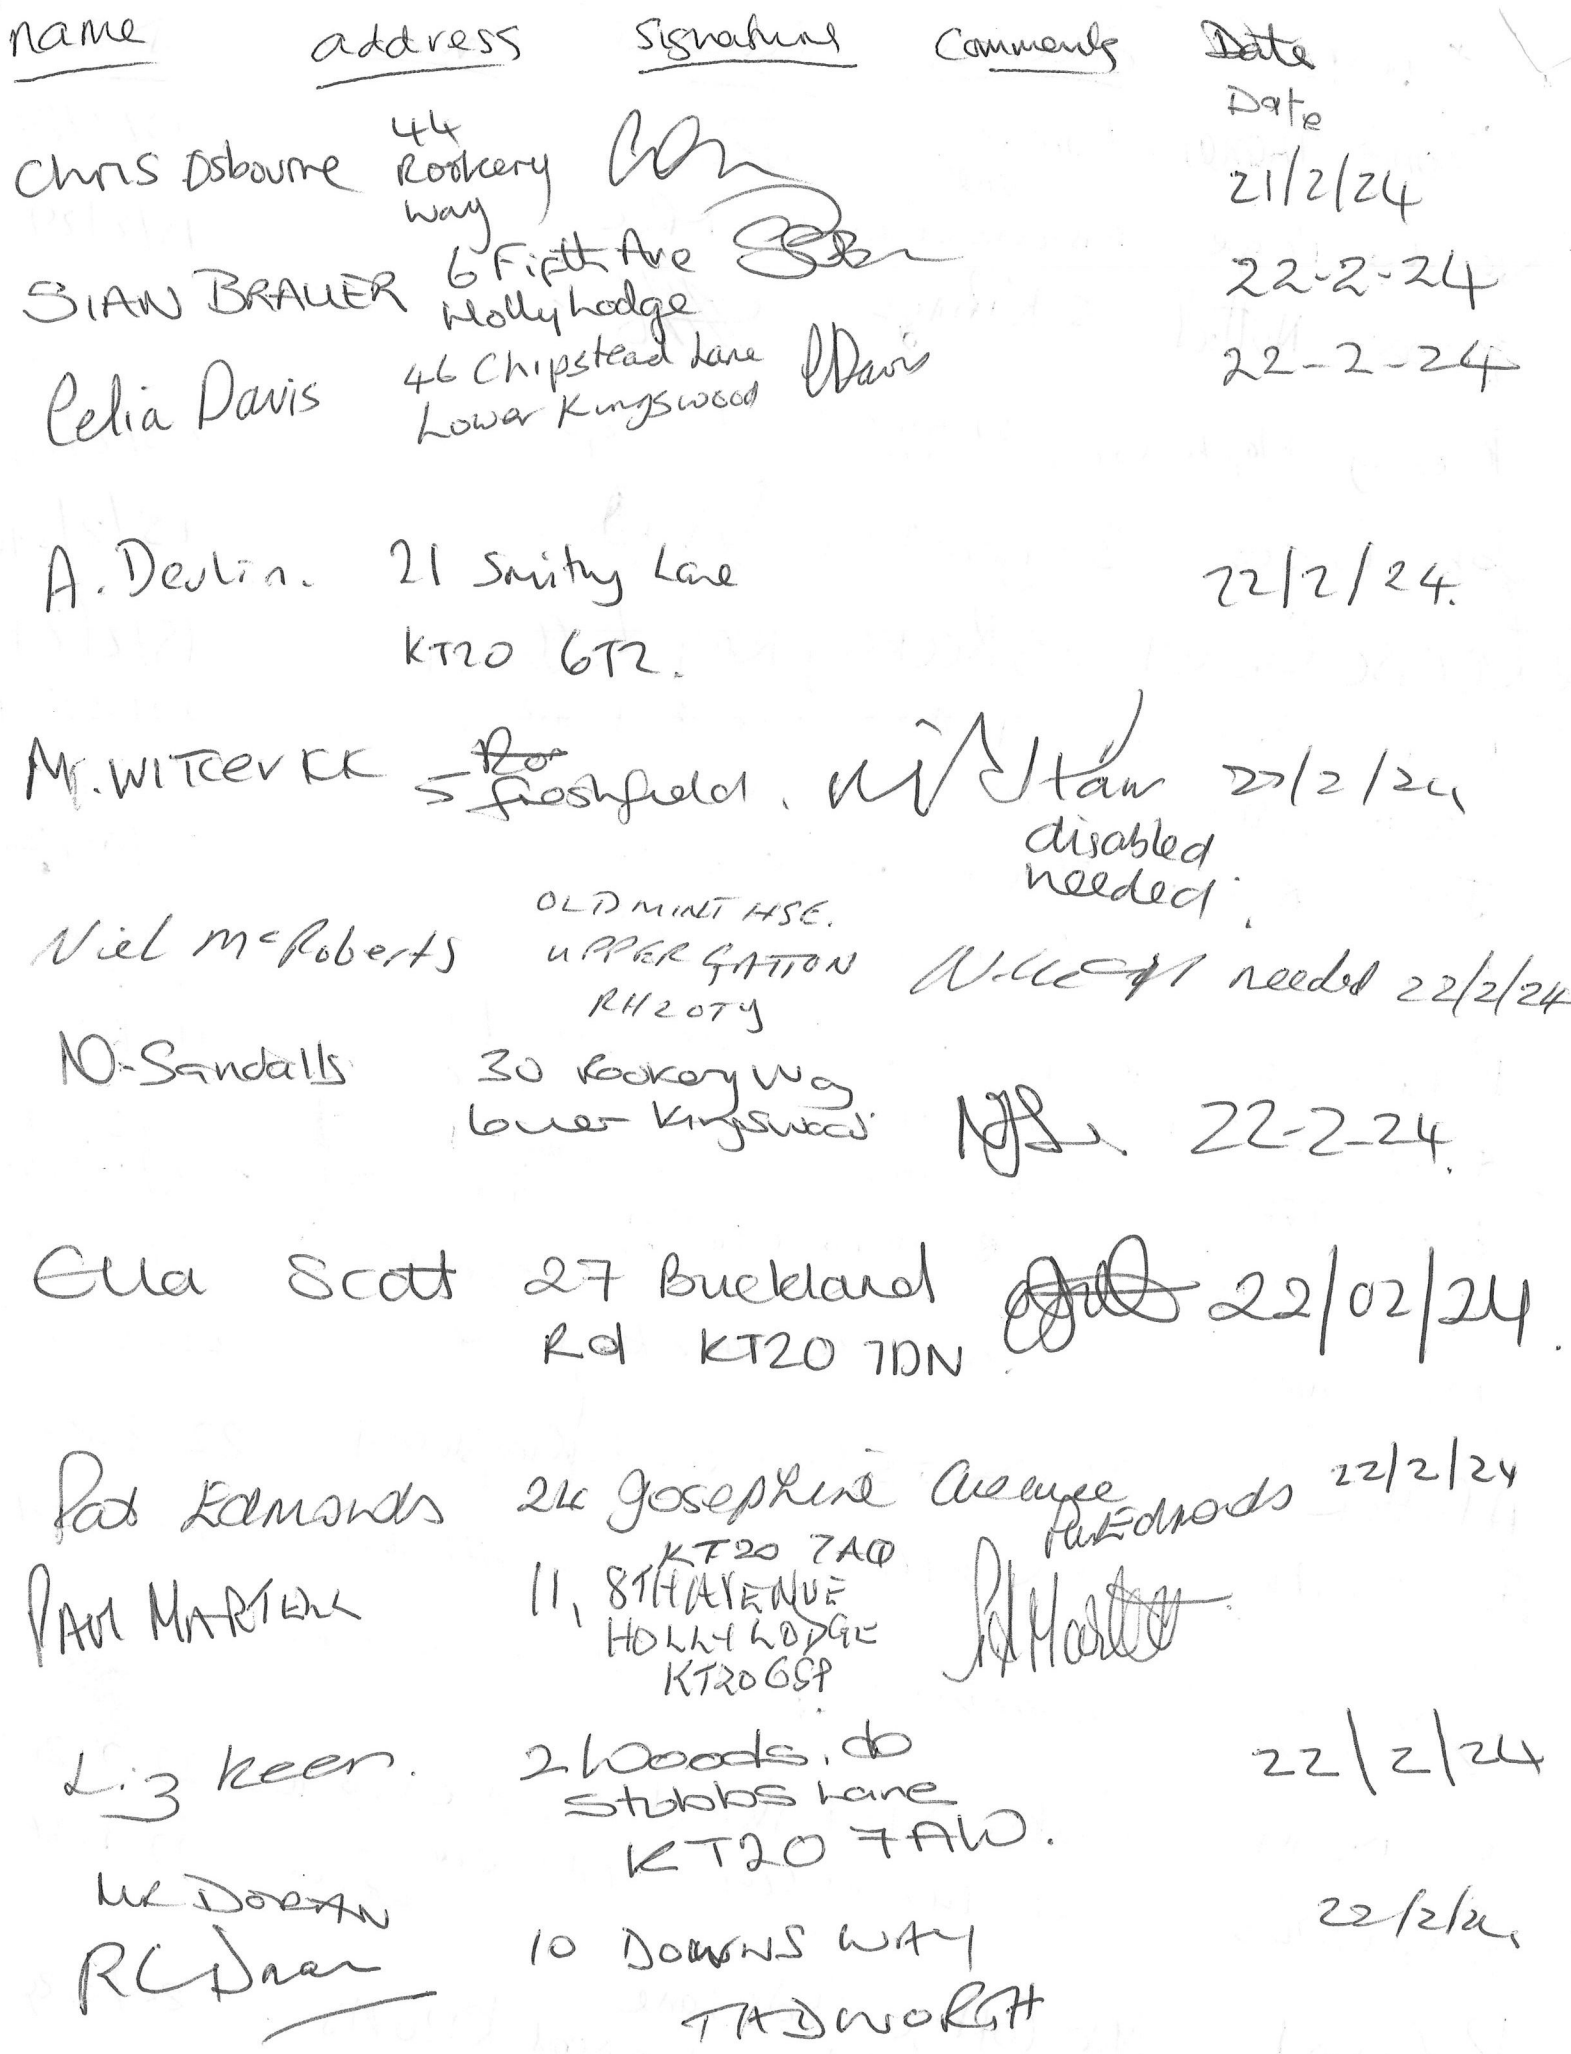 name address signature Comments Date
Date
Chris Osbourne 44 Rookery Way 21/2/24
SIAN BRAUER 6 Fifth Ave Holly Lodge 22-2-24
Celia Davis 46 Chipstead Lane Lower Kingswood CDavis 22-2-24
A. Devlin. 21 Smithy Lane 22/2/24.
KT20 6TZ.
Mr. 5 22/2/24
disabled
needed.
Niel McRoberts OLD MINT HSE.
UPPER GATTON needed 22/2/24
RH2 0TY
N. Sandalls 30 Rookery Way
Lower Kingswood 22-2-24.
Ella Scott 27 Buckland 22/02/24.
Rd KT20 7DN
Pat Edmonds 24 Josephine Avenue 22/2/24
KT20 7AQ P Edmonds
PAUL 11, 8TH AVENUE
HOLLY LODGE
KT20 6SP
Liz Keen. 2 Woods 22/2/24
Stubbs Lane
KT20 7AW.
MR DORAN 22/2/24
10 DOWNS WAY
TADWORTH